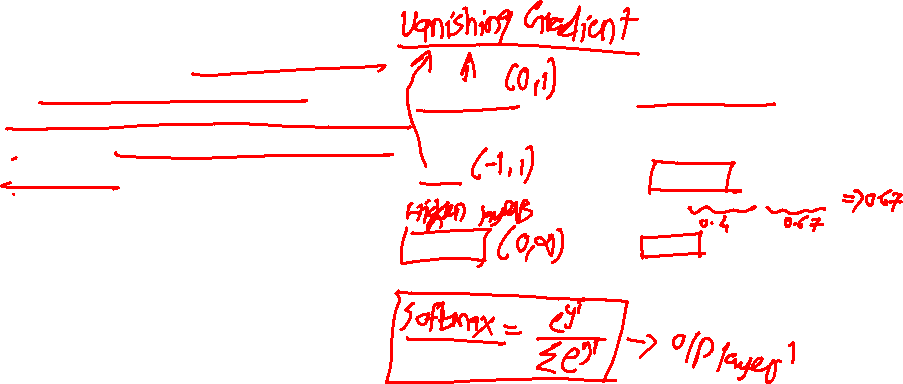 Vanishing Gradient
(0,1)
(-1,1)
Hidden layers
0.4 0.67 => 0.67
(0,∞)
Softmax = e^yi / Σe^yi → o/p layer